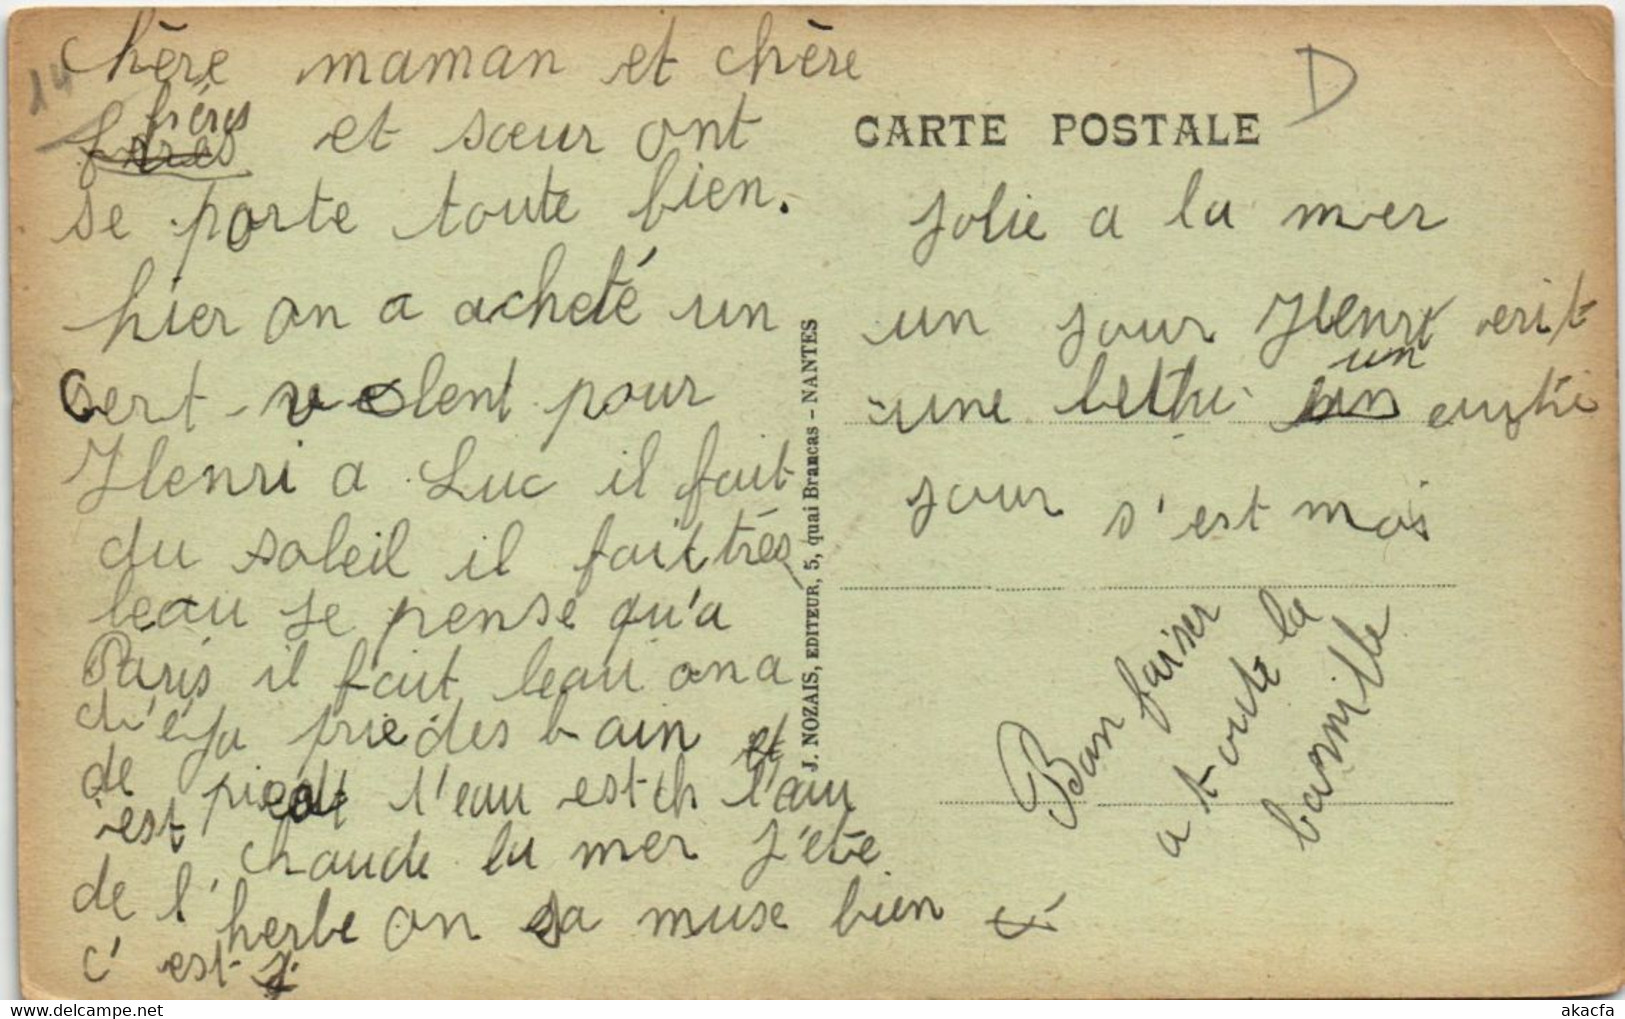 chère maman et chère
frères et sœur ont
se porte toute bien.
hier on a acheté un
cert-volent pour
Henri a Luc il fait
du soleil il fait très
beau je pense qu'a
Paris il fait beau on a
d'éja prie des bain
de pied l'eau est ch l'eau
est chaude la mer j'éte
de l'herbe on sa muse bien
c'est j
14
D
CARTE POSTALE
J. NOZAIS, EDITEUR, 5, quai Brancas - NANTES
jolie a la mer
un jour Henri erit
une lettre un
jour s'est moi
Bon baiser
a toute la
barmille
akacfa